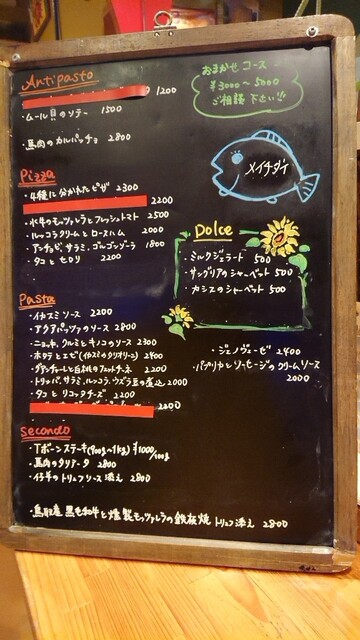 Antipasto
1200
・ムール貝のソテー 1500
・馬肉のカルパッチョ 2800
Pizza
・4種に分かれたピザ 2300
2200
・水牛のモッツァレラとフレッシュトマト 2500
・ルッコラクリームとロースハム 2000
・アンチョビ、サラミ、ゴルゴンゾーラ 1800
・タコとセロリ 2200
Pasta
・イカスミソース 2200
・アクアパッツァのソース 2800
・ニョッキ、クルミとキノコのソース 2300
・ホタテとエビ(イカスミのタリオリーニ) 2400
・グアンチャーレと白桃のフェットチーネ 2200
・トリッパ、サラミ、ルッコラ、ウズラ豆の煮込 2000
・タコとリコッタチーズ 2200
2200
Secondo
・Tボーンステーキ(900g~1kg) ¥1000/100g
・馬肉のタリアータ 2800
・仔牛のトリュフソース添え 2800
・鳥取産黒毛和牛と燻製モッツァレラの鉄板焼 トリュフ添え 2800
おまかせコース
¥3000~5000
ご相談下さい!!
メイチダイ
Dolce
・ミルクジェラート 500
・サングリアのシャーベット 500
・カシスのシャーベット 500
・ジェノヴェーゼ 2400
・パプリカとソーセージのクリームソース
2000